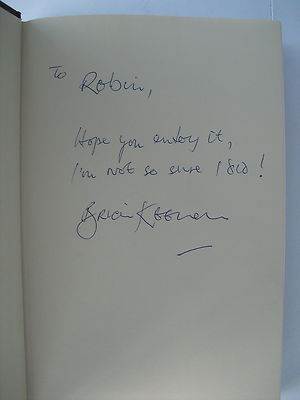 To Robin,
Hope you enjoy it,
I'm not so sure I did!
Brian Keenan